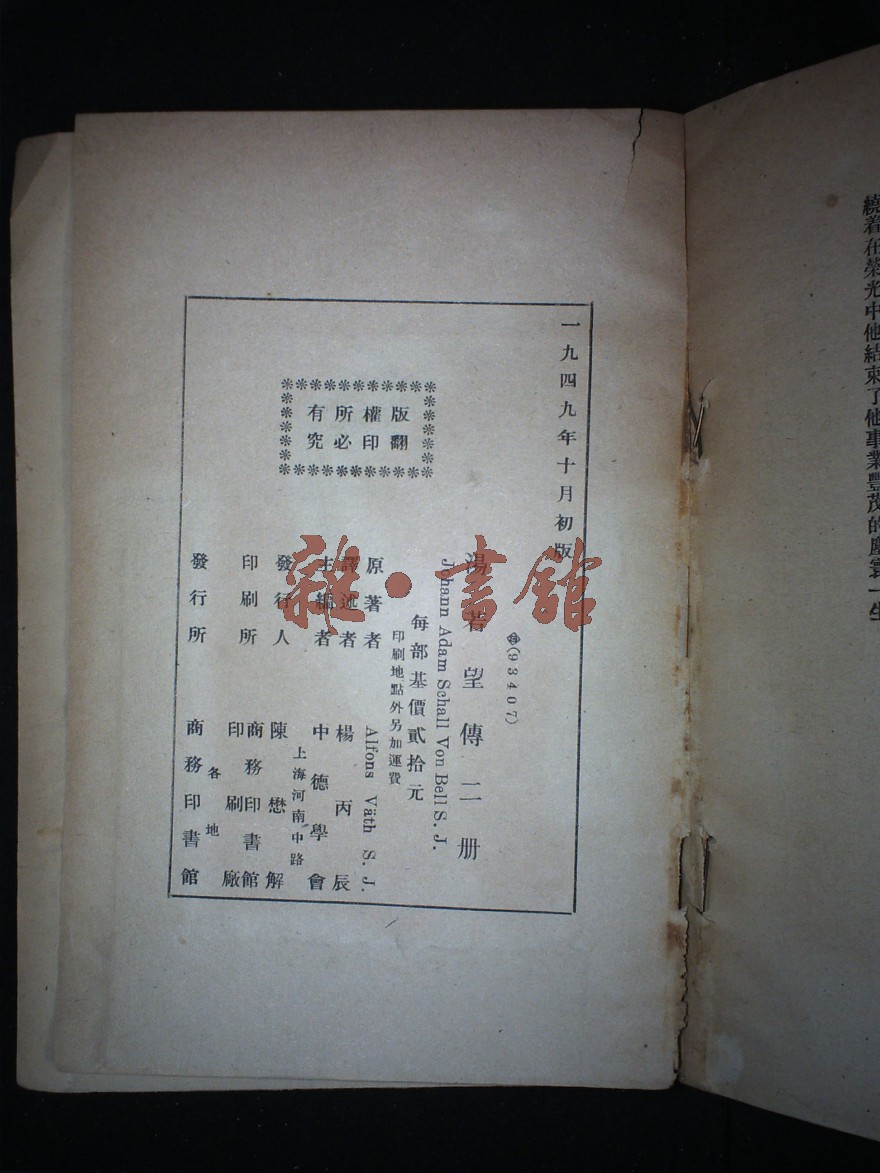 繞着在榮光中他結束了他事業豐茂的塵寰一生
一九四九年十月初版
(93407)
湯若望傳二册
Johann Adam Schall Von Bell S. J.
每部基價貳拾元
印刷地點外另加運費
版權所有
翻印必究
原著者 Alfons Väth S. J.
譯述者 楊丙辰
主編者 中德學會
上海河南中路
發行人 陳懋解
印刷所 商務印書館
印刷廠
各地
發行所 商務印書館
雜·書館